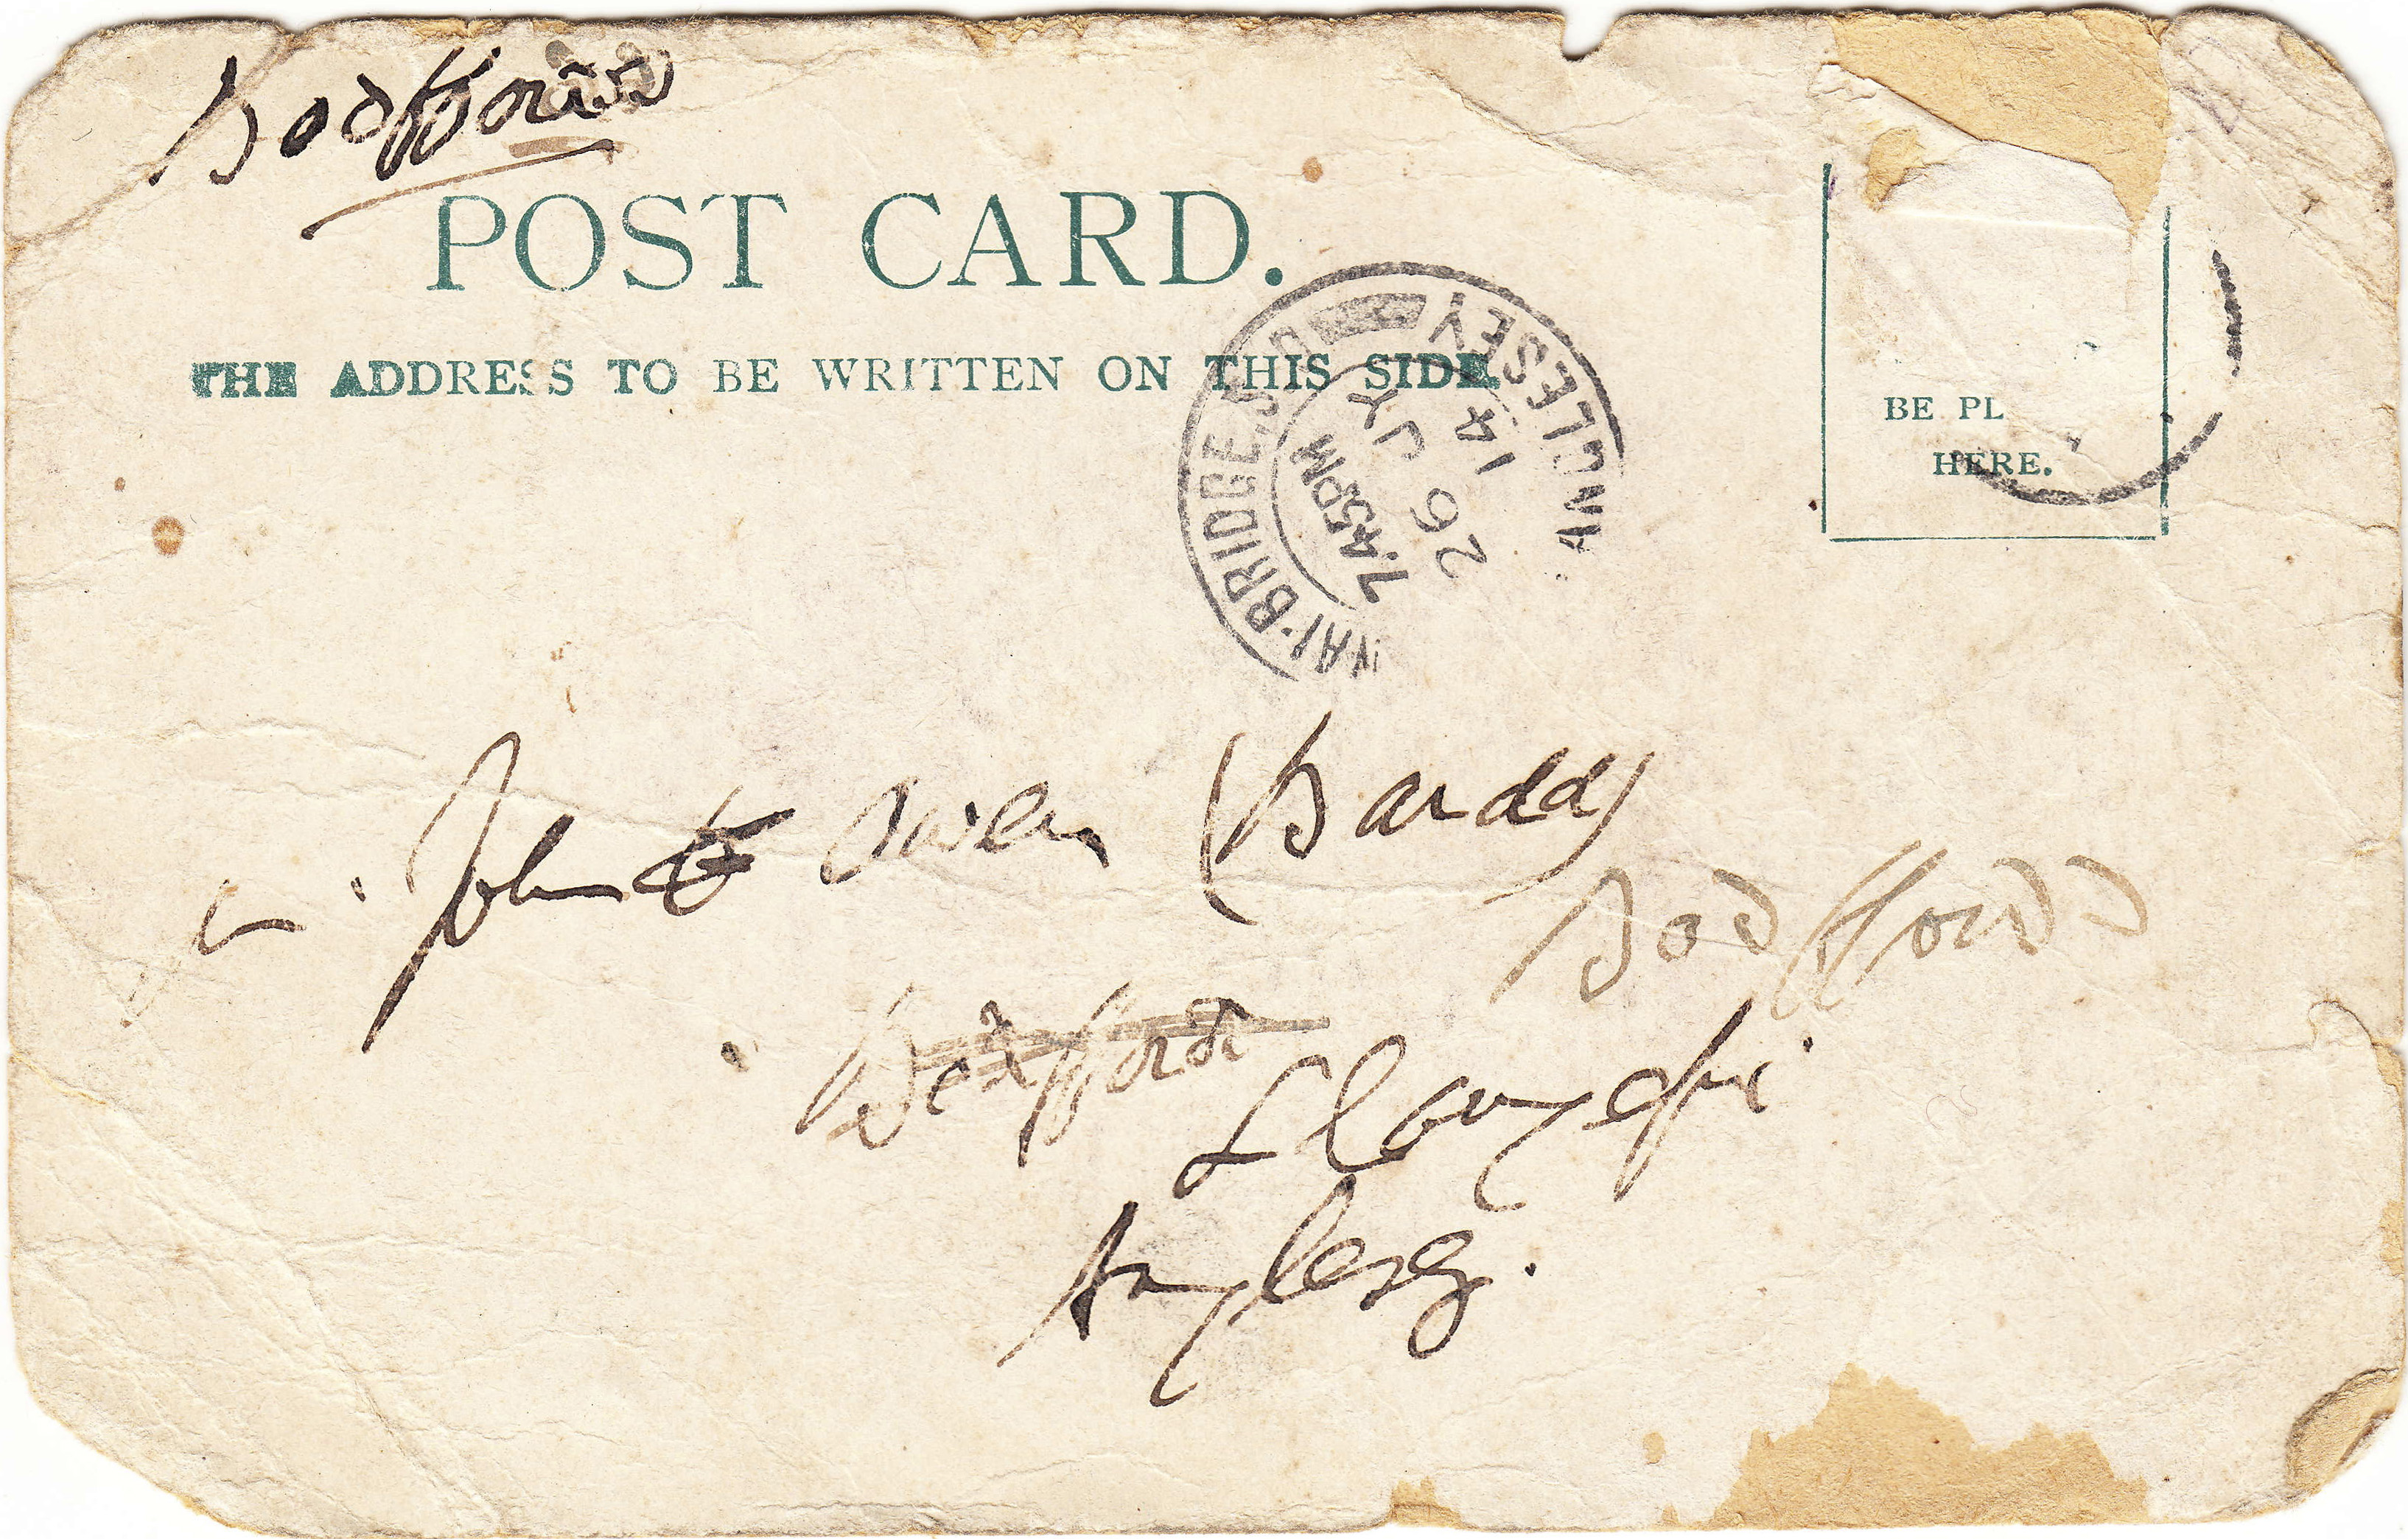 Bodffordd
POST CARD.
THE ADDRESS TO BE WRITTEN ON THIS SIDE.
BE PL
HERE.
AI-BRIDGE.S.O
ANGLESEY
7.45PM
26 JY
14
John E Owen (Bardd)
Bodffordd
Llangefni
Anglesey.